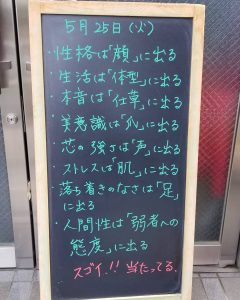 5月25日(火)
・性格は「顔」に出る
・生活は「体型」に出る
・本音は「仕草」に出る
・美意識は「爪」に出る
・芯の強さは「声」に出る
・ストレスは「肌」に出る
・落ち着きのなさは「足」
に出る
・人間性は「弱者への
態度」に出る
スゴイ!! 当たってる。